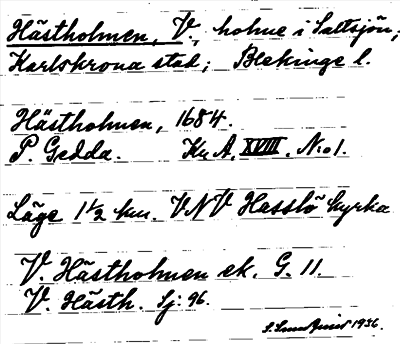 Hästholmen, V., holme i Saltsjön;
Karlskrona stad; Blekinge l.
Hästholmen, 1684.
P. Gedda. Kr. A. XVIII. No 1.
Läge 1 1/2 km. VNV Hasslö kyrka
V. Hästholmen ek. G. 11.
V. Hästh. Sj: 96.
1936.